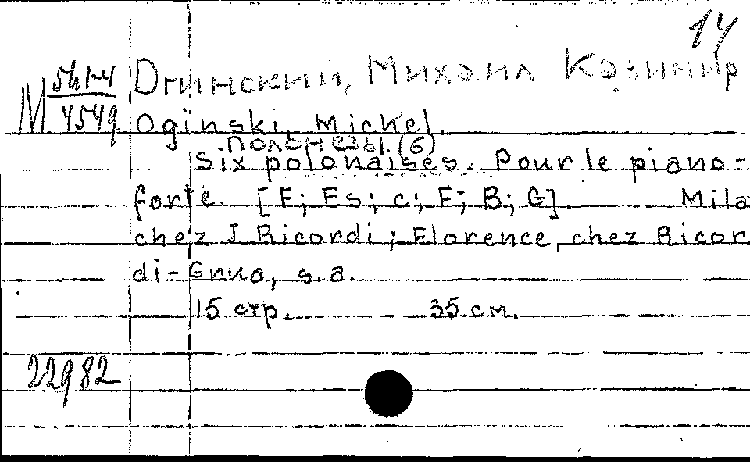 14
М 561-4 Огинский, Михаил Казимир
4549 Oginski, Mickel.
Полонезы. (6)
Six polonaises. Pour le piano-
forte. [F; Es; c; F; B; G]. Mila
chez J. Ricordi; Florence, chez Ricor
di-Grua, s.a.
15 стр. 35 см.
22982